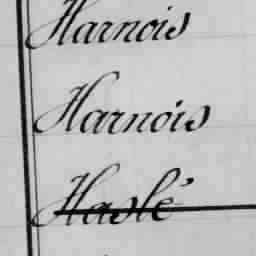 Harnois
Harnois
Haslé